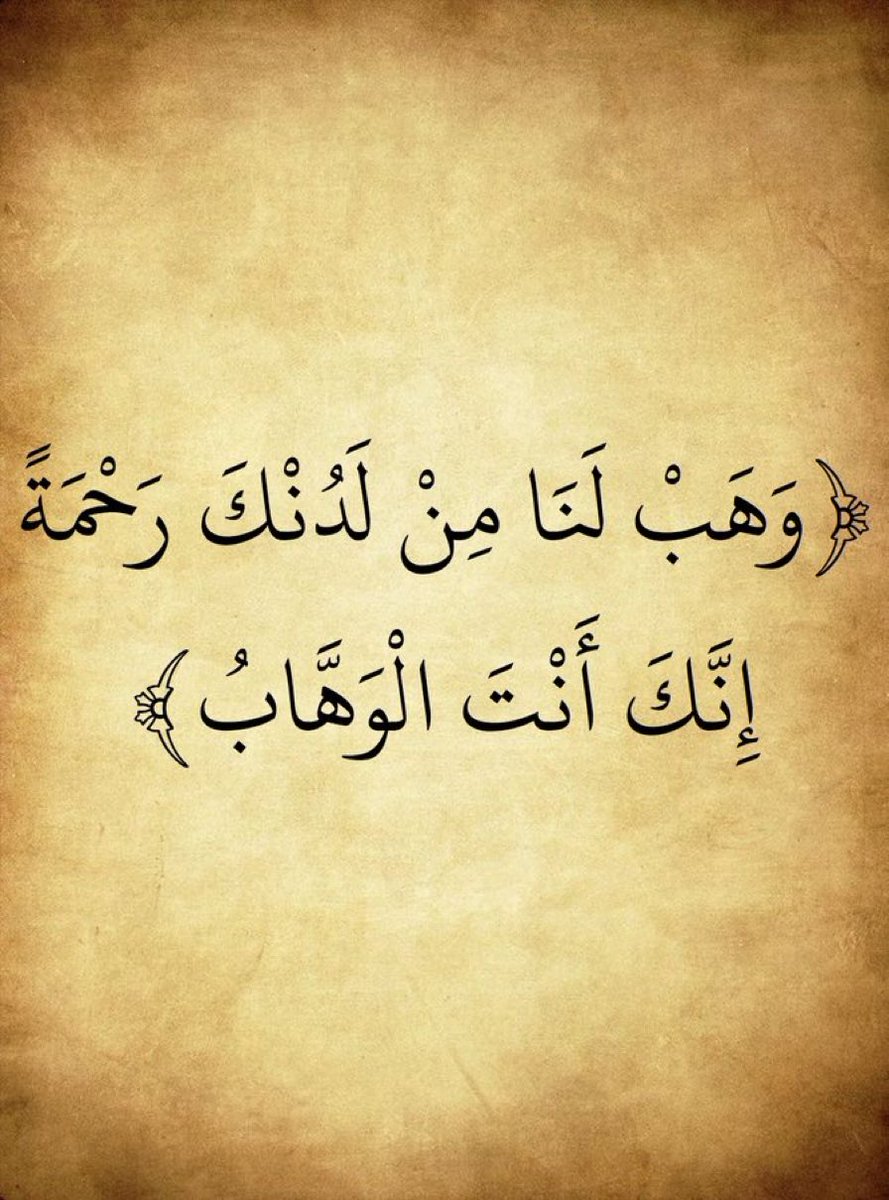 ﴿وَهَبْ لَنَا مِنْ لَدُنْكَ رَحْمَةً
إِنَّكَ أَنْتَ الْوَهَّابُ﴾